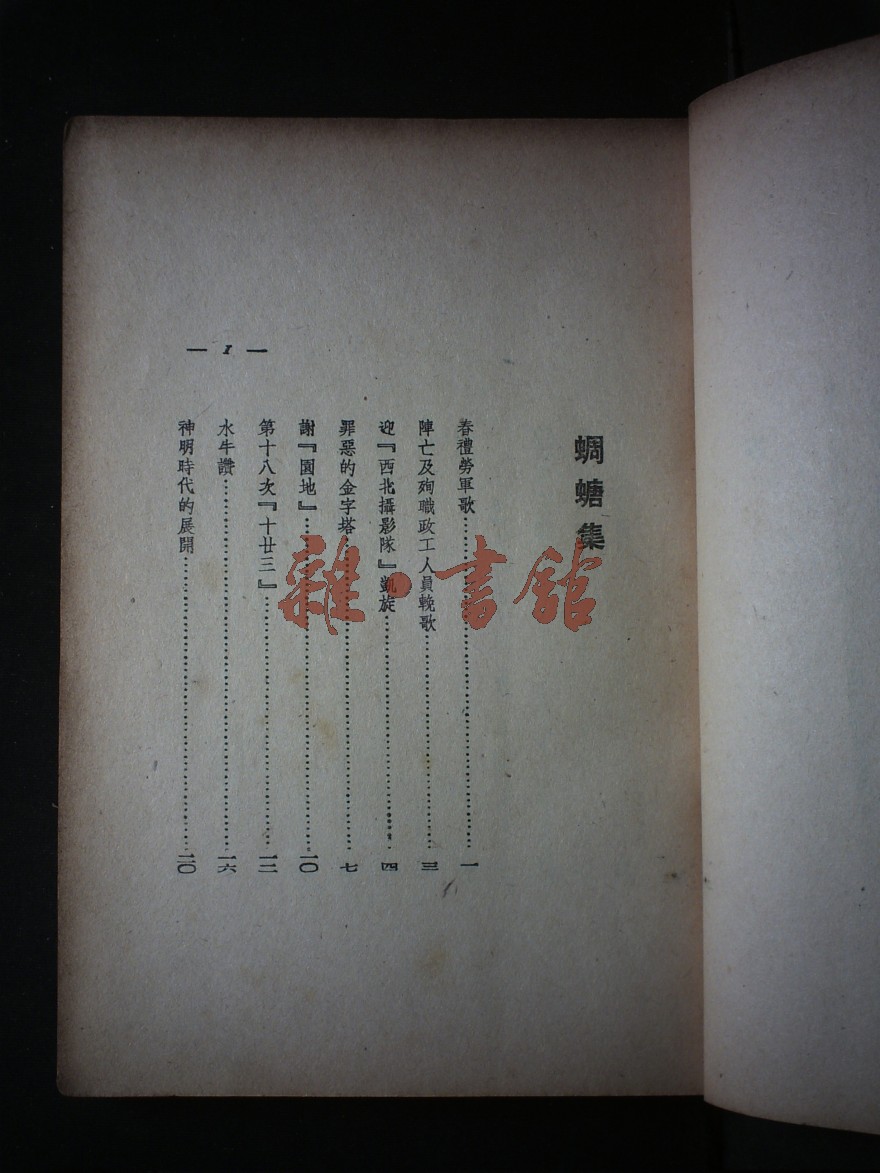 蜩螗集
春禮勞軍歌……一
陣亡及殉職政工人員輓歌……三
迎『西北攝影隊』凱旋……四
罪惡的金字塔……七
謝『園地』……一〇
第十八次『十廿三』……一二
水牛讚……一六
神明時代的展開……二〇
— I —
雜·書館